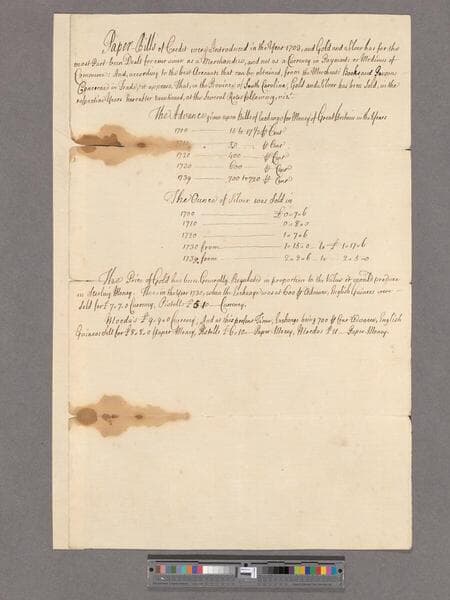 Paper Bills of Credit were Introduced in the Year 1703, and Gold and Silver has for the
most Part been Dealt for ever since as a Merchandize, and not as a Currency in Payments or Mediums of
Commerce: And, according to the best Accounts that can be obtained, from the Merchants Books and Persons
Concerned in Trade, it appears That, in the Province of South Carolina, Gold and Silver has been Sold, in the
respective Years hereafter mentioned, at the General Rates following, viz.
The Advance given upon bills of Exchange for Money of Great Britain in the Years
1700 15 to 17½ ⅌ Cent
50 ⅌ Cent
1721 400 ⅌ Cent
1730 600 ⅌ Cent
1739 700 to 720 ⅌ Cent
The Ounce of Silver was Sold in
1700 £0.7.6
1710 0.8.0
1720 1.7.6
1730 from 1.15.0 to £1.17.6
1739 from 2.2.6 to 2.5.0
The Price of Gold has been Generally Regulated in proportion to the Value it would produce
in Sterling Money. Thus in the Year 1731, when the Exchange was at 600 ⅌ Ct Advance, English Guineas were
Sold for £7.7.0 Currency, Pistoll £5.10 Currency,
Moeda's £9.9.0 Currency, And at this present Time, Exchange being 700 ⅌ Cent Advance, English
Guineas Sell for £8.8.0 Paper Money, Pistolls £6.10 Paper Money, Moedas £11 Paper Money.